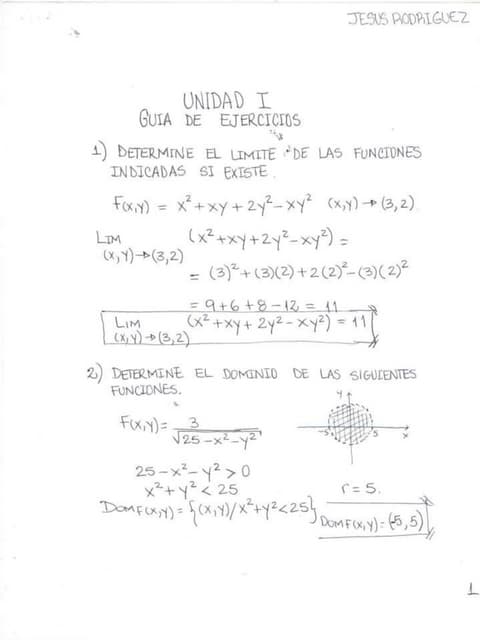 JESUS RODRIGUEZ
UNIDAD I
GUIA DE EJERCICIOS
1) DETERMINE EL LIMITE DE LAS FUNCIONES
INDICADAS SI EXISTE.
F(x,y) = x²+xy+2y²-xy² (x,y)→(3,2)
LIM (x²+xy+2y²-xy²) =
(x,y)→(3,2)
= (3)²+(3)(2)+2(2)²-(3)(2)²
= 9+6+8-12 = 11
LIM (x²+xy+2y²-xy²) = 11
(x,y)→(3,2)
2) DETERMINE EL DOMINIO DE LAS SIGUIENTES
FUNCIONES.
F(x,y)= 3
√25-x²-y²
y
-5 5 x
25-x²-y²>0
x²+y²<25
r=5.
DOMF(x,y)={(x,y)/x²+y²<25}
DOMF(x,y)=(-5,5)
1